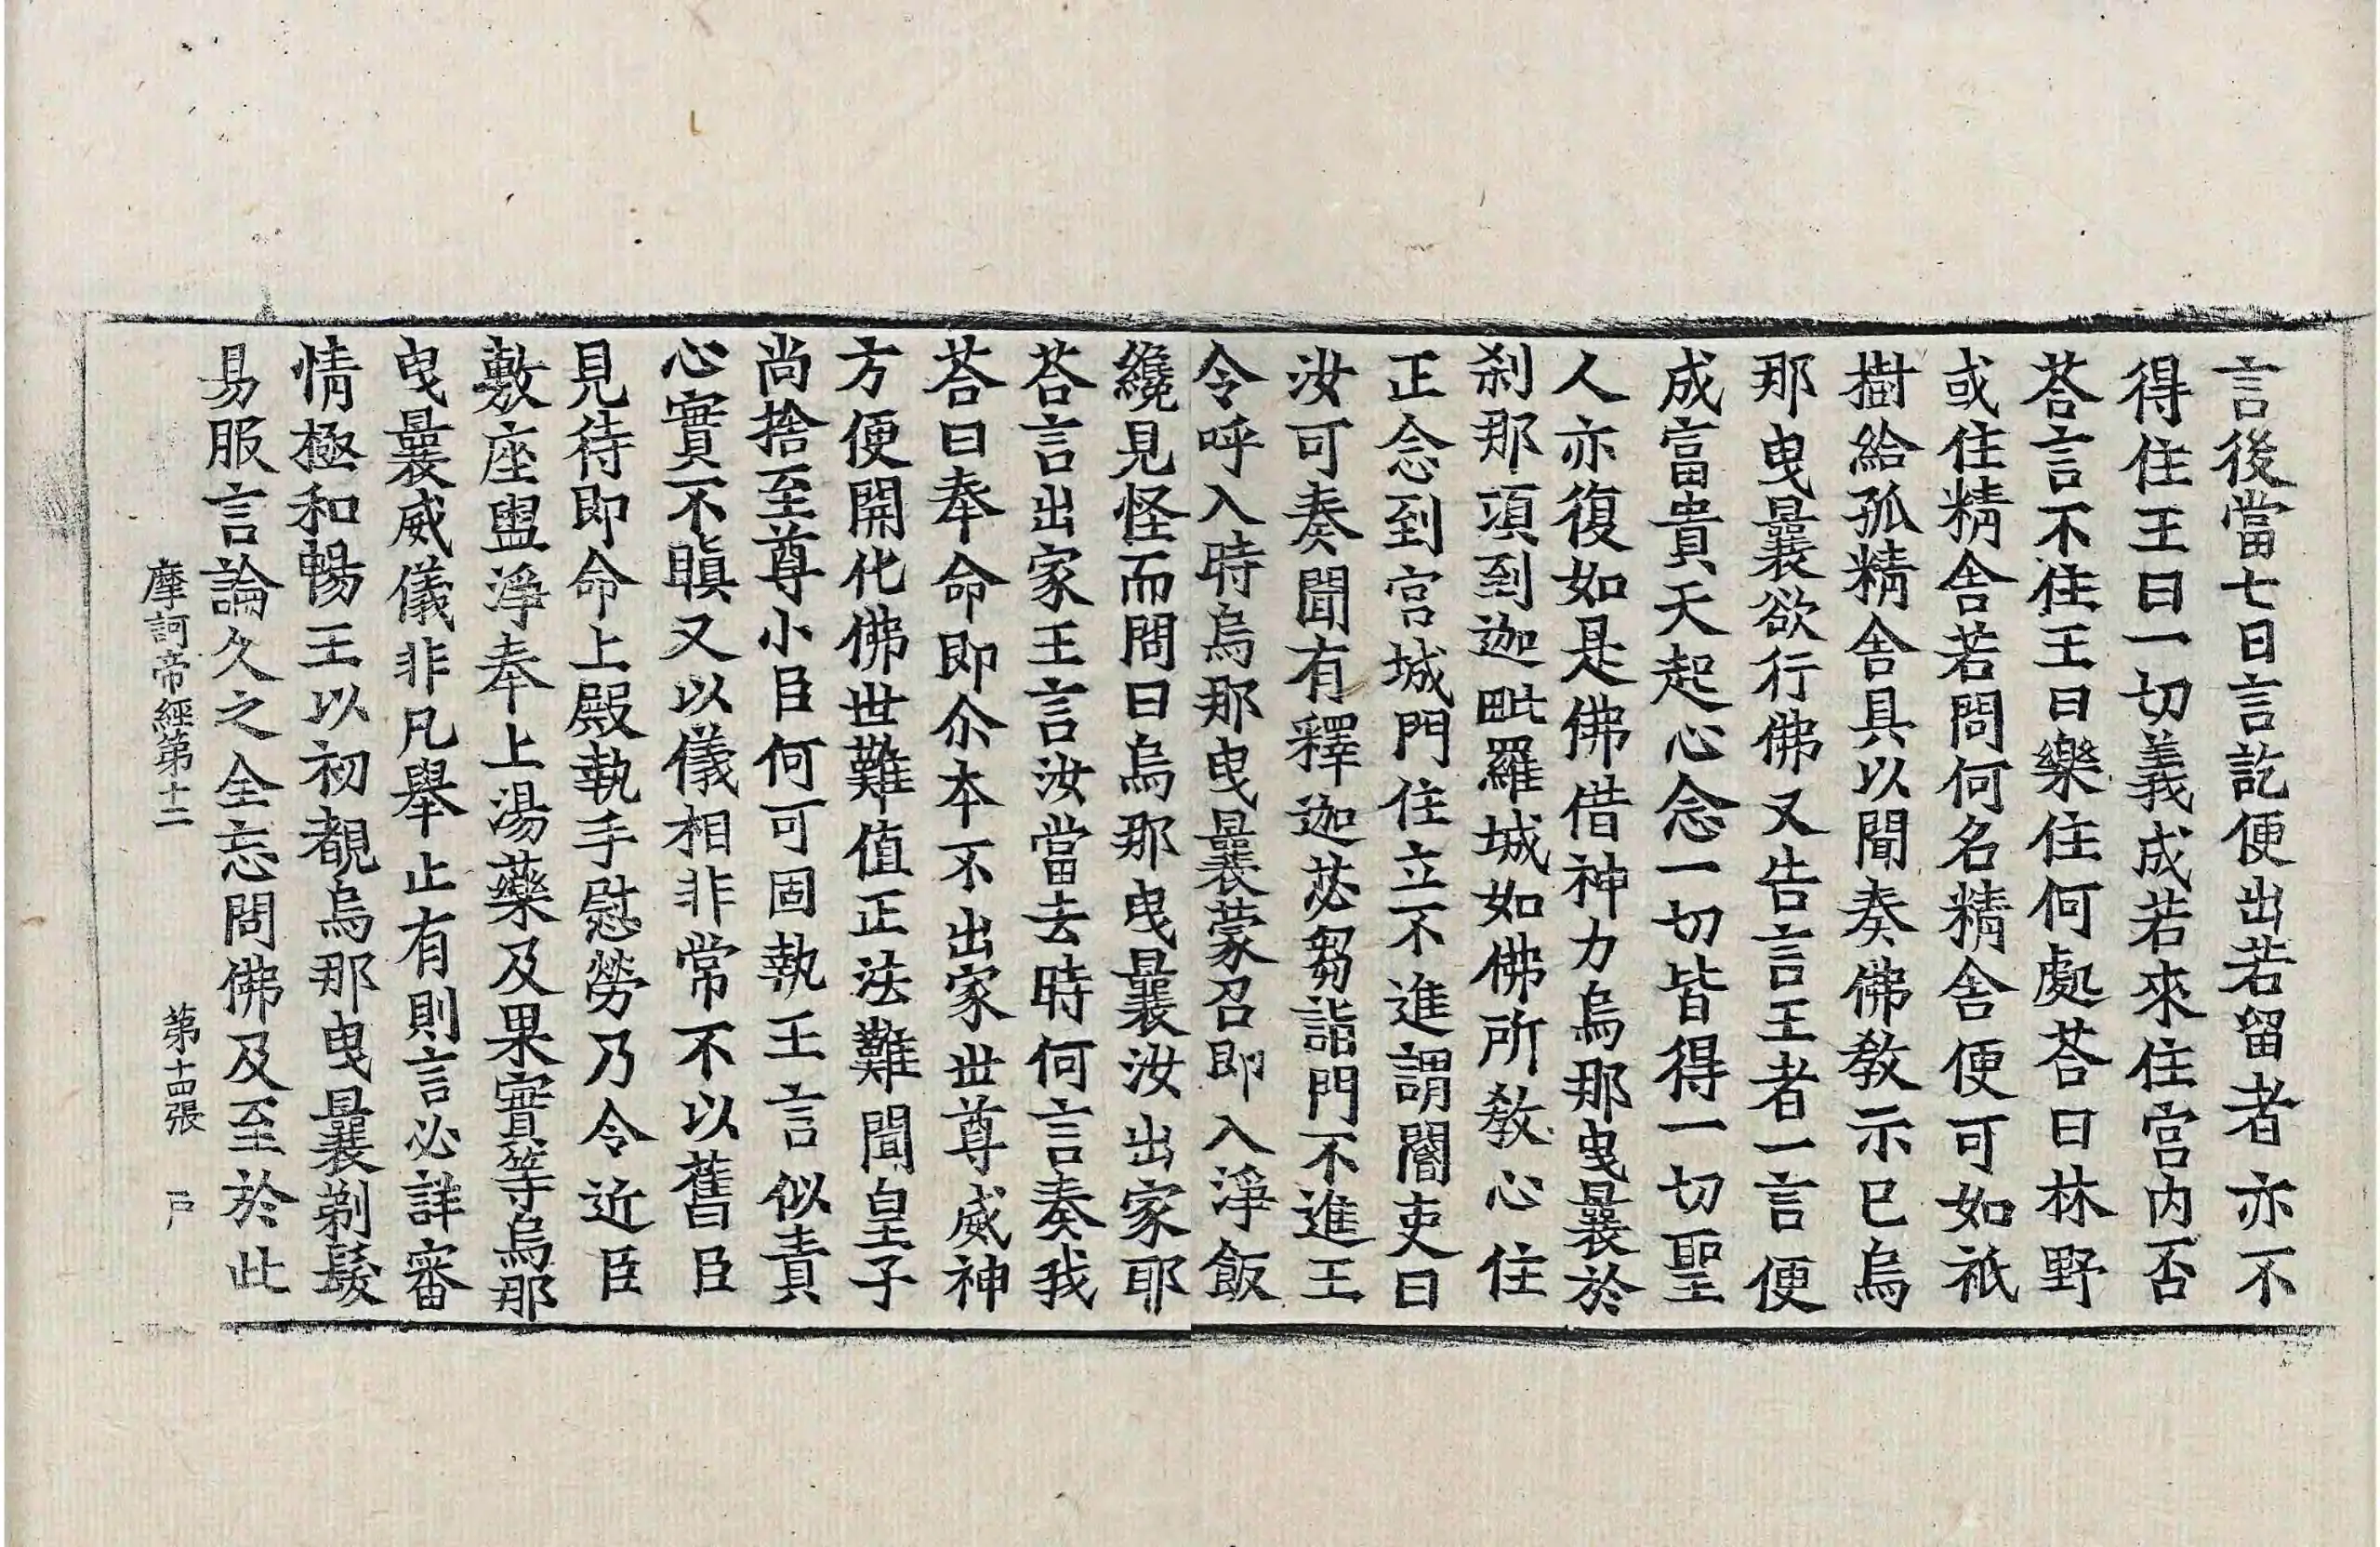 言後當七日言訖便出若留者亦不
得住王曰一切義成若來住宮内否
荅言不住王曰樂住何處荅曰林野
或住精舍若問何名精舍便可如祇
樹給孤精舍具以聞奏佛敎示已烏
那曳曩欲行佛又告言王者一言便
成富貴天起心念一切皆得一切聖
人亦復如是佛借神力烏那曳曩於
刹那項到迦毗羅城如佛所敎心住
正念到宮城門住立不進謂閽吏曰
汝可奏聞有釋迦苾芻詣門不進王
令呼入時烏那曳曩蒙召即入淨飯
纔見怪而問曰烏那曳曩汝出家耶
荅言出家王言汝當去時何言奏我
荅曰奉命即尒本不出家世尊威神
方便開化佛世難值正法難聞皇子
尚捨至尊小臣何可固執王言似責
心實不瞋又以儀相非常不以舊臣
見待即命上殿執手慰勞乃令近臣
敷座盥淨奉上湯藥及果實等烏那
曳曩威儀非凡舉止有則言必詳審
情極和暢王以初覩烏那曳曩剃髮
易服言論久之全忘問佛及至於此
摩訶帝經第十二　第十四張　戸